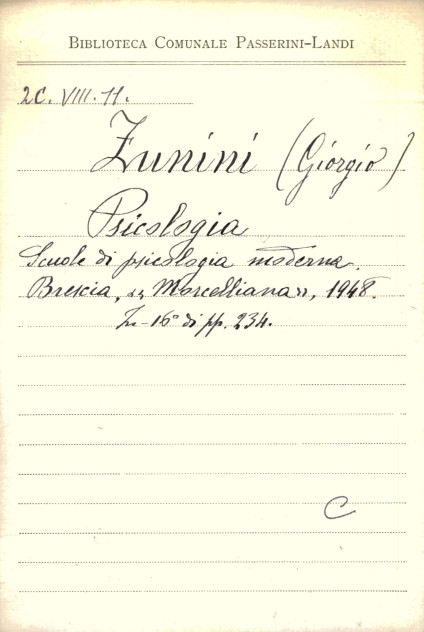 BIBLIOTECA COMUNALE PASSERINI-LANDI
2C. VIII. 11.
Zunini (Giorgio)
Psicologia
Scuole di psicologia moderna.
Brescia, «Morcelliana», 1948.
In-16° di pp. 234.
C